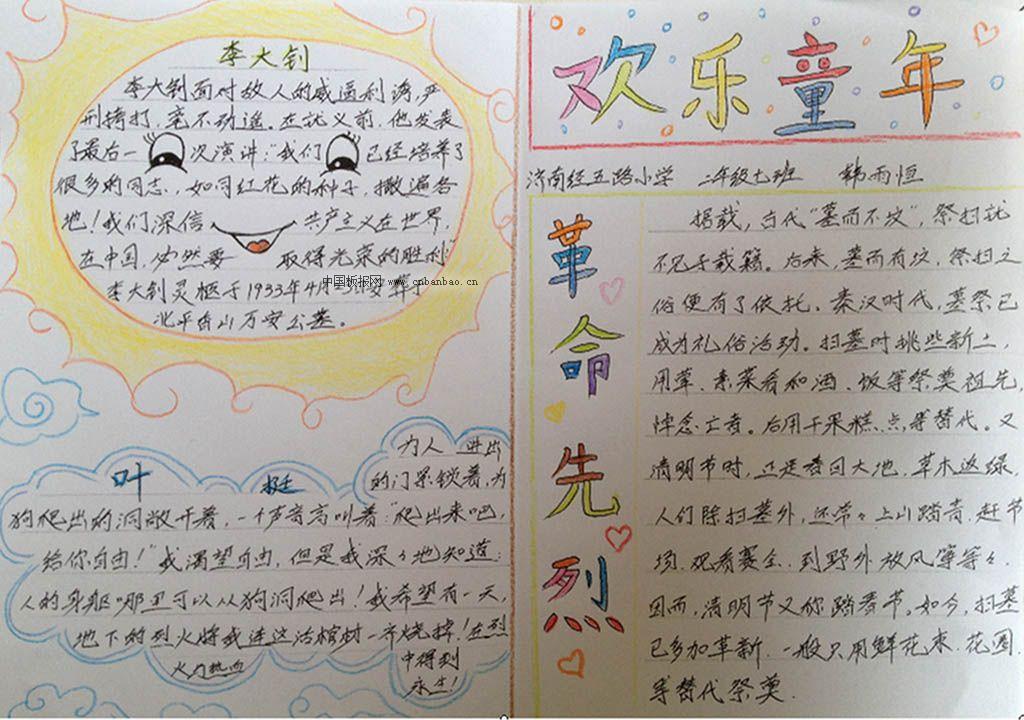 李大钊
李大钊面对敌人的威逼利诱,严
刑拷打,毫不动遥。在就义前,他发表
了最后一次演讲:“我们已经培养了
很多的同志,如同红花的种子,撒遍各
地!我们深信 共产主义在世界,
在中国,必然要 取得光荣的胜利”
中国板报网 www.cnbanbao.cn
李大钊灵柩于1933年4月 葬于
北平香山万安公墓。
叶 挺
为人 进出
的门紧锁着,为
狗爬出的洞敞开着,一个声音高叫着:“爬出来吧,
给你自由!”我渴望自由,但是我深々地知道:
人的身躯哪里可以从狗洞爬出!我希望有一天,
地下的烈火将我连这活棺材一齐烧掉!在烈
火与热血
中得到
永生!
欢乐童年
济南经五路小学 二年级七班 韩雨恒
革命先烈
据载,古代“墓而不坟”,祭扫就
不见于载籍。后来,墓而有坟,祭扫之
俗便有了依托。秦汉时代,墓祭已
成为礼俗活动。扫墓时挑些新土,
用草、素菜肴和酒、饭等祭奠祖先,
悼念亡者。后用干果糕、点等替代。又
清明节时,正是春回大地,草木返绿,
人们除扫墓外,还常々上山踏青、赶节
场、观看赛会、到野外放风筝等々,
因而,清明节又称踏春节。如今,扫墓
已多加革新,一般只用鲜花束、花圈
等替代祭奠.